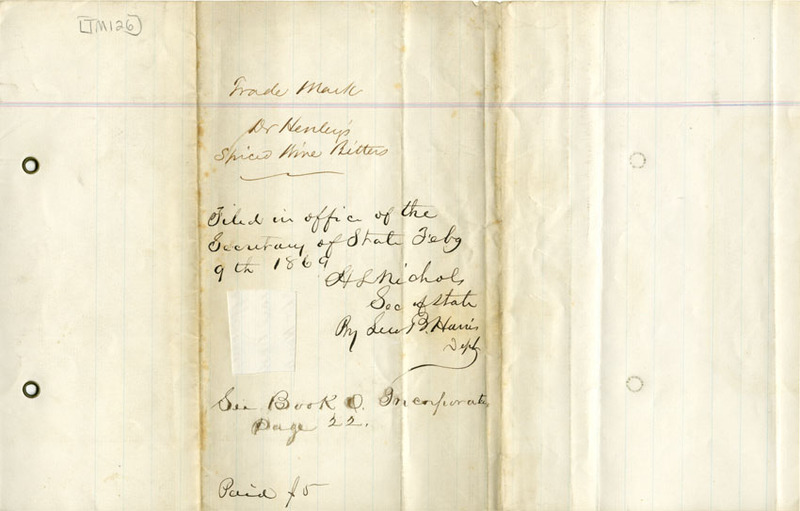 [TM126]
Trade Mark
Dr Henley's
Spiced Wine Bitters
Filed in office of the
Secretary of State Feby
9th 1869
H L Nichols
Sec of State
By Geo B. Harris
Dept
See Book O. Incorporate
Page 22.
Paid $5